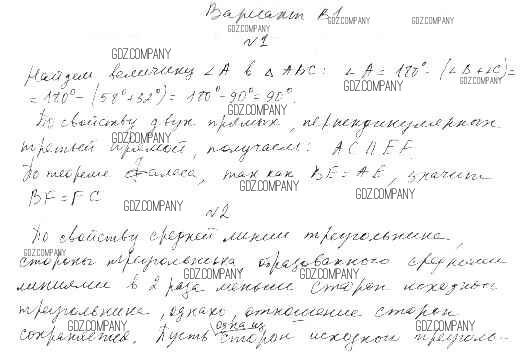 Вариант В1
GDZ.COMPANY GDZ.COMPANY
GDZ.COMPANY
№1
GDZ.COMPANY
Найдем величину ∠A в △ ABC: ∠A = 180° - (∠B+∠C)=
GDZ.COMPANY GDZ.COMPANY
= 180° - (58°+32°) = 180° - 90° = 90°.
GDZ.COMPANY
По свойству двух прямых, перпендикулярных
GDZ.COMPANY
третьей прямой, получаем: AC || EF.
GDZ.COMPANY
По теореме Фалеса, так как BE = AE, значит
GDZ.COMPANY GDZ.COMPANY
BF = FC
GDZ.COMPANY
№2
По свойству средней линии треугольника,
GDZ.COMPANY
стороны треугольника образованного средними
GDZ.COMPANY GDZ.COMPANY
линиями в 2 раза меньше сторон исходного
треугольника, однако, отношение сторон
GDZ.COMPANY GDZ.COMPANY
сохраняется. Пусть одна из сторон исходного треуголь-